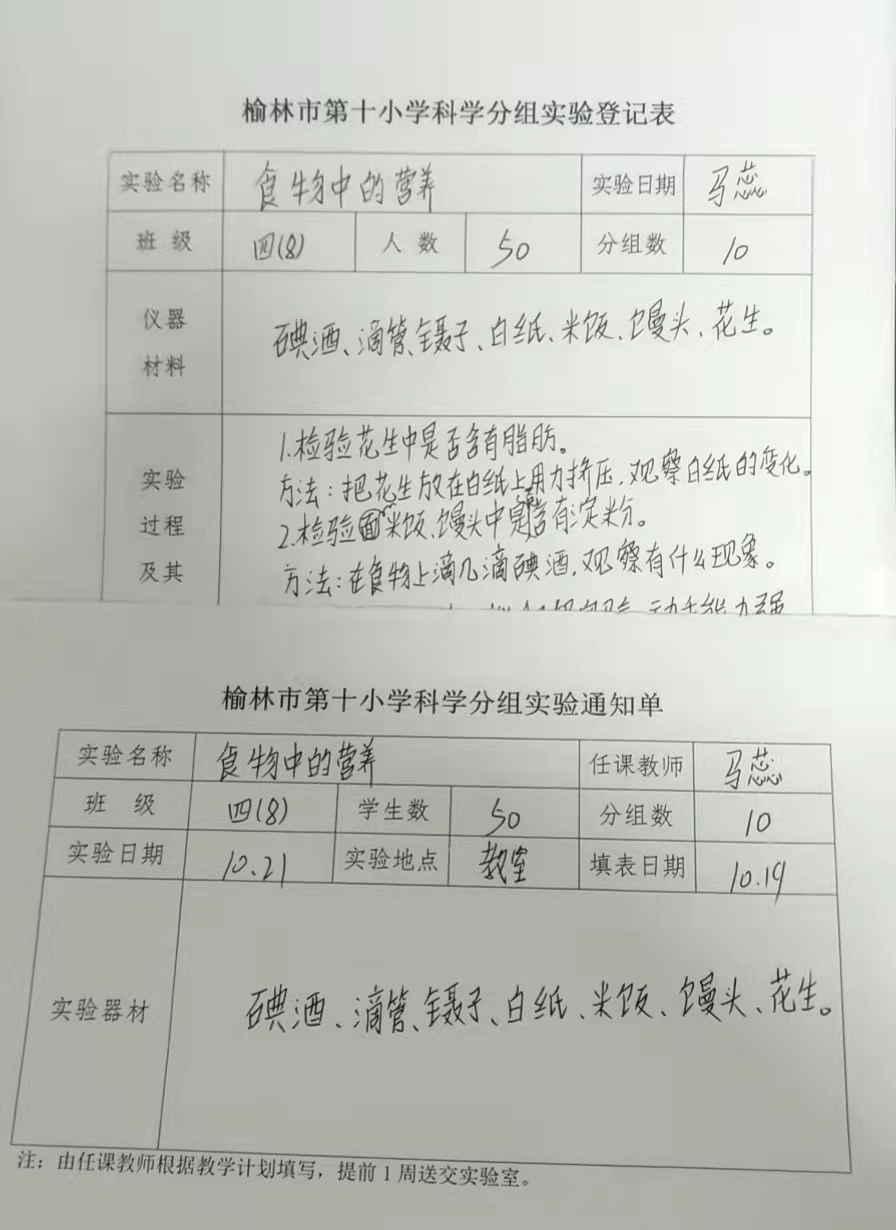 榆林市第十小学科学分组实验登记表
实验名称 食物中的营养 实验日期 马蕊
班 级 四(8) 人 数 50 分组数 10
仪器
材料
碘酒、滴管、镊子、白纸、米饭、馒头、花生。
实验
过程
及其
1.检验花生中是否含有脂肪。
方法:把花生放在白纸上用力挤压,观察白纸的变化。
2.检验米饭、馒头中是否含有淀粉。
方法:在食物上滴几滴碘酒,观察有什么现象。
榆林市第十小学科学分组实验通知单
实验名称 食物中的营养 任课教师 马蕊
班 级 四(8) 学生数 50 分组数 10
实验日期 10.21 实验地点 教室 填表日期 10.19
实验器材 碘酒、滴管、镊子、白纸、米饭、馒头、花生。
注:由任课教师根据教学计划填写,提前1周送交实验室。